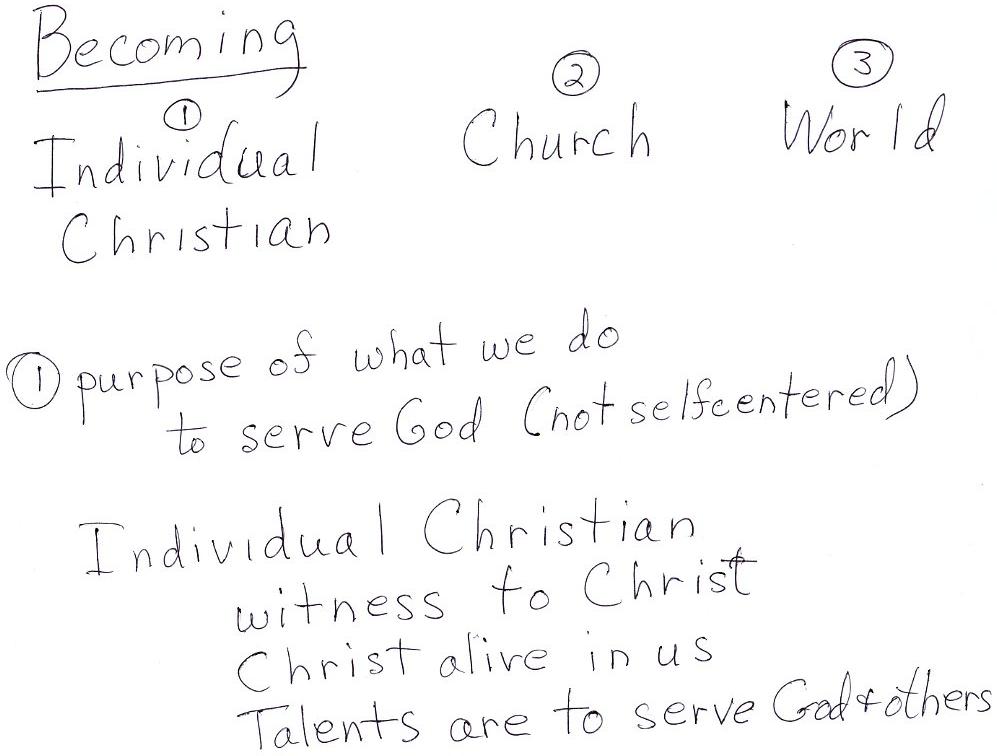 Becoming
① ② ③
Individual Church World
Christian
① purpose of what we do
to serve God (not selfcentered)
Individual Christian
witness to Christ
Christ alive in us
Talents are to serve God & others